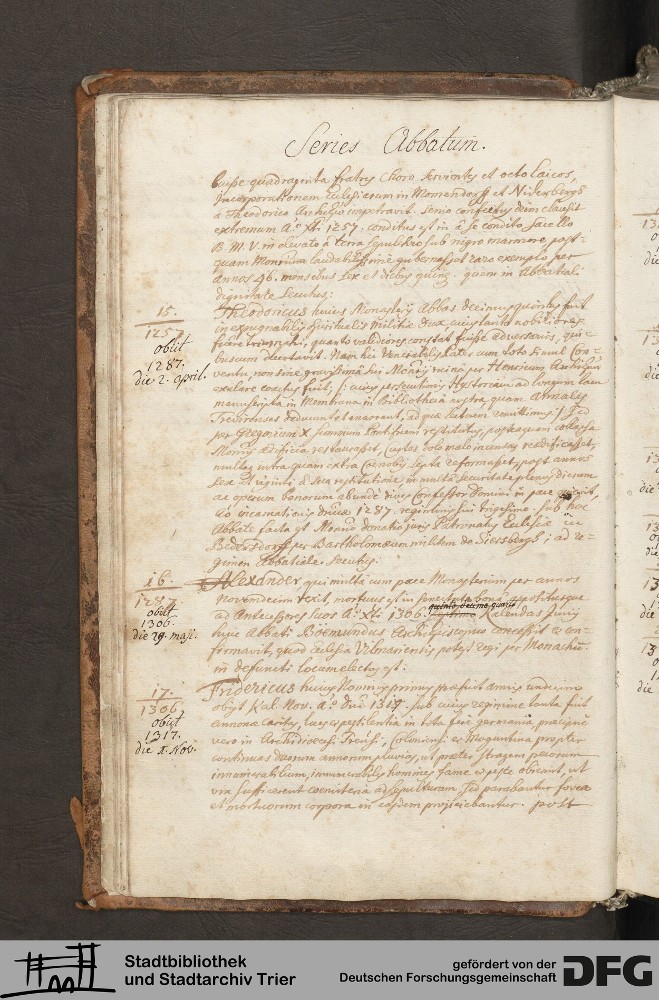 Series Abbatum.
buisse quadraginta fratres Choro servientes et octo laicos,
Incorporationem Ecclesiarum in Monrendorff et Niderbergh
à Theodorico impetravit. senio confectus diem clausit
extremum Aº Xti 1257. conditus est in à se condito sacello
B. M. V. in elevato à terra sepulchro sub nigro marmore, post-
quam Monrium laudabilissime gubernasset raro exemplo per
annos 46. mensibus sex et diebus quinq. quem in Abbatiali
dignitate secutus:
15.
1257
obiit
1287.
die 2. April.
Theodoricus huius Monasterÿ Abbas decimus quintus fuit
inexpugnabilis spiritualis militiæ Dux, cuius tanto nobiliores
fuere triumphi, quanto validiores constat fuisse adversarios, qui-
buscum decertavit. Nam hic Venerabilis Pater cum toto suo Con-
ventu non sine gravissima sui Monrÿ ruina per Henricum
exulare coactus fuit, /: cuius persecutionis Hystoriam ad longum tam
manuscripta in Membrana in Bibliotheca nostra quam Annales
Trevirenses deducunt et enarrant, ad quæ Lectorem remittimus :/ sed
per Gregorium X. summum Pontificem restitutus, postquam collapsa
Monrÿ ædificia restaurasset, reædificasset,
multas intra quam extra Cœnobÿ septa reformasset, post annos
sex et viginti à sua restitutione in multa securitate plenus dierum
ac operum bonorum abunde dives Confessor Domini in pace
Aº incarnationis Dnicæ 1287. regiminis sui trigesimo. sub hoc
Abbate facta est Monrio donatio juris Patronatus Ecclesiæ in
Bedersdorff per Bartholomæum militem de Siersbergh; ad re-
gimen Abbatiale secutus:
16.
1287
obiit
1306.
die 29. maji.
Alexander qui multa cum pace Monasterium per annos
novendecim rexit, mortuus est in senectute bona, appositusque
ad Antecessores suos Aº Xti 1306. quinto decimo quarto Kalendas Junÿ
huic Abbati Boemundus Archiepiscopus concessit et con-
firmavit, quod Ecclesia Vilmariensis potest regi per Monachum.
in defuncti locum electus est:
17.
1306.
obiit
1317.
die 1. Nov.
Fridericus huius Nominis primus præfuit annis undecim
obÿt Kal. Nov. aº Dni 1317. sub cuius regimine tanta fuit
annonæ caritas, lues et pestilentia in tota fere germania, præcipue
vero in Archidiœcesi Trevirensi, Coloniensi et Moguntina propter
continuas duorum annorum pluvias, ut præter stragem pecorum
innumerabilium, innumerabiles homines fame et peste obierint, ut
vix sufficerent cœmiteria ad sepulturam, sed parabantur foveæ
et mortuorum corpora in easdem projiciebantur. post
Stadtbibliothek
und Stadtarchiv Trier
gefördert von der
Deutschen Forschungsgemeinschaft
DFG